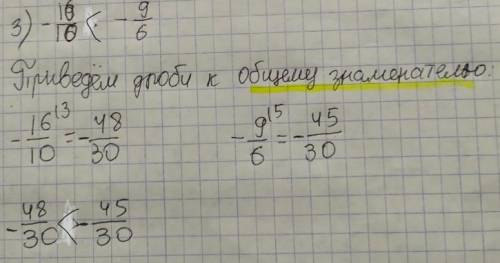 3) -16/10 < -9/6
Приведём дроби к общему знаменателю:
-16/10 ^3 = -48/30 -9/6 ^5 = -45/30
-48/30 < -45/30